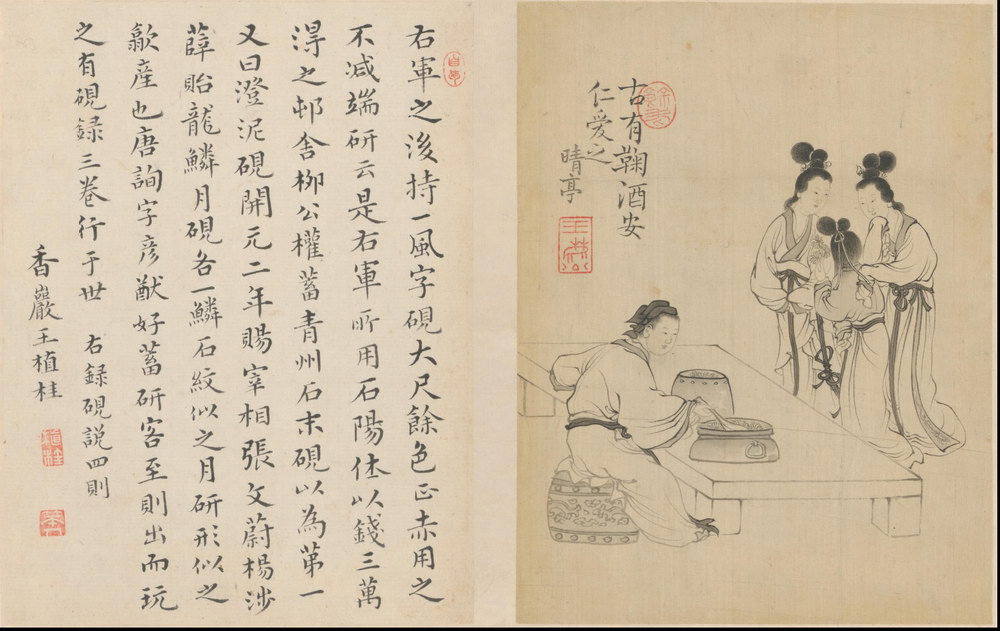 古有鞠酒安
仁愛之
晴亭
右軍之後持一風字硯大尺餘色正赤用之
不減端研云是右軍所用石陽休以錢三萬
淂之邨舍柳公權蓄青州石末硯以為第一
又曰澄泥硯開元二年賜宰相張文蔚楊涉
薛貽龍鱗月硯各一鱗石紋似之月研形似之
歙産也唐詢字彦猷好蓄研客至則出而玩
之有硯録三卷行于世 右録硯説四則
香巖王植桂